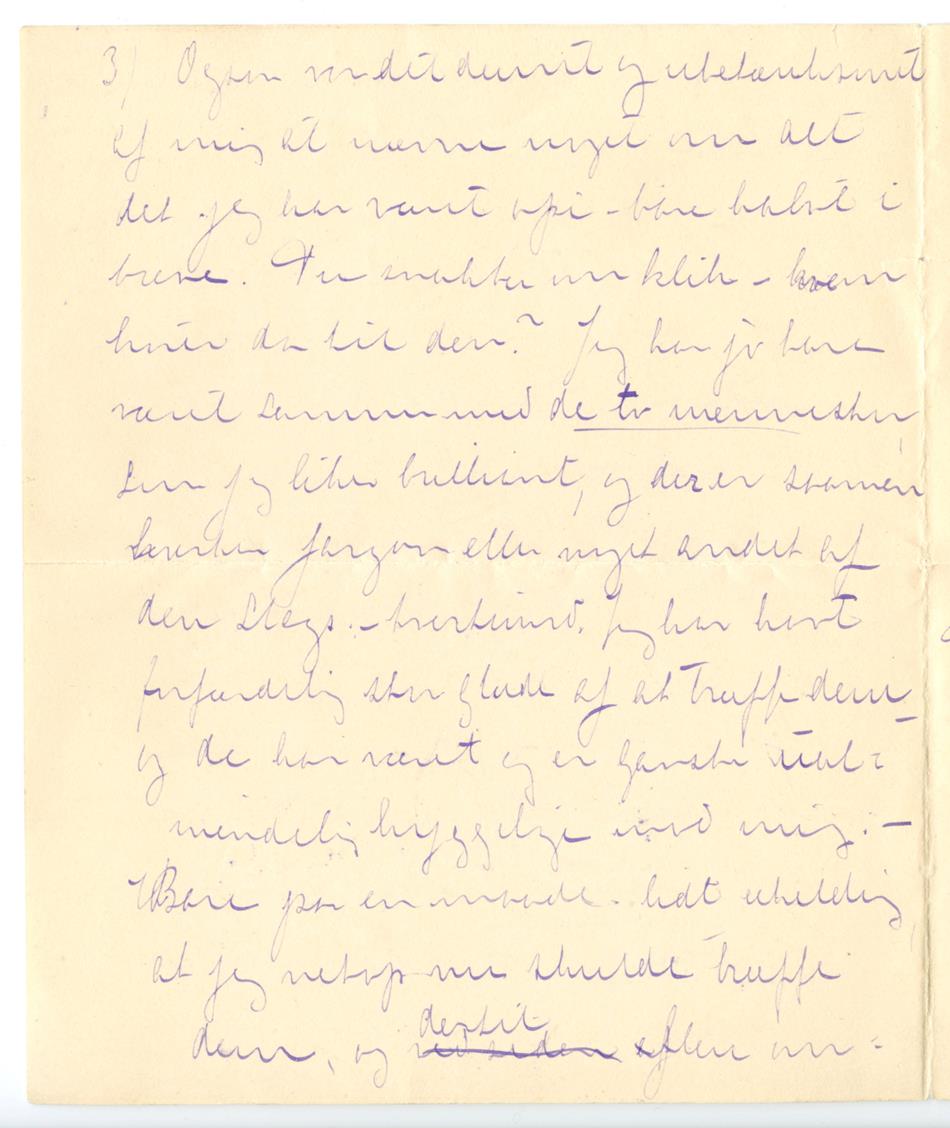 3) Ogsaa var det dumt og ubetænksomt
af mig at nævne noget om alt
det jeg har været opi – bare halvt i
breve. Du snakker om klik – hvem
hører da til den? Jeg har jo bare
været sammen med de to mennesker,
som jeg liker brilliant, og der er saamen
hverken jargon eller noget andet af
den slags. – tvertimod. Jeg har havt
forfærdelig stor glæde af at træffe dem
og de har været og er ganske ual=
mindelig hyggelige imod mig. –
Bare paa en maade – lidt uheldig,
at jeg netop nu skulde træffe
dertil
dem, og ved siden om=